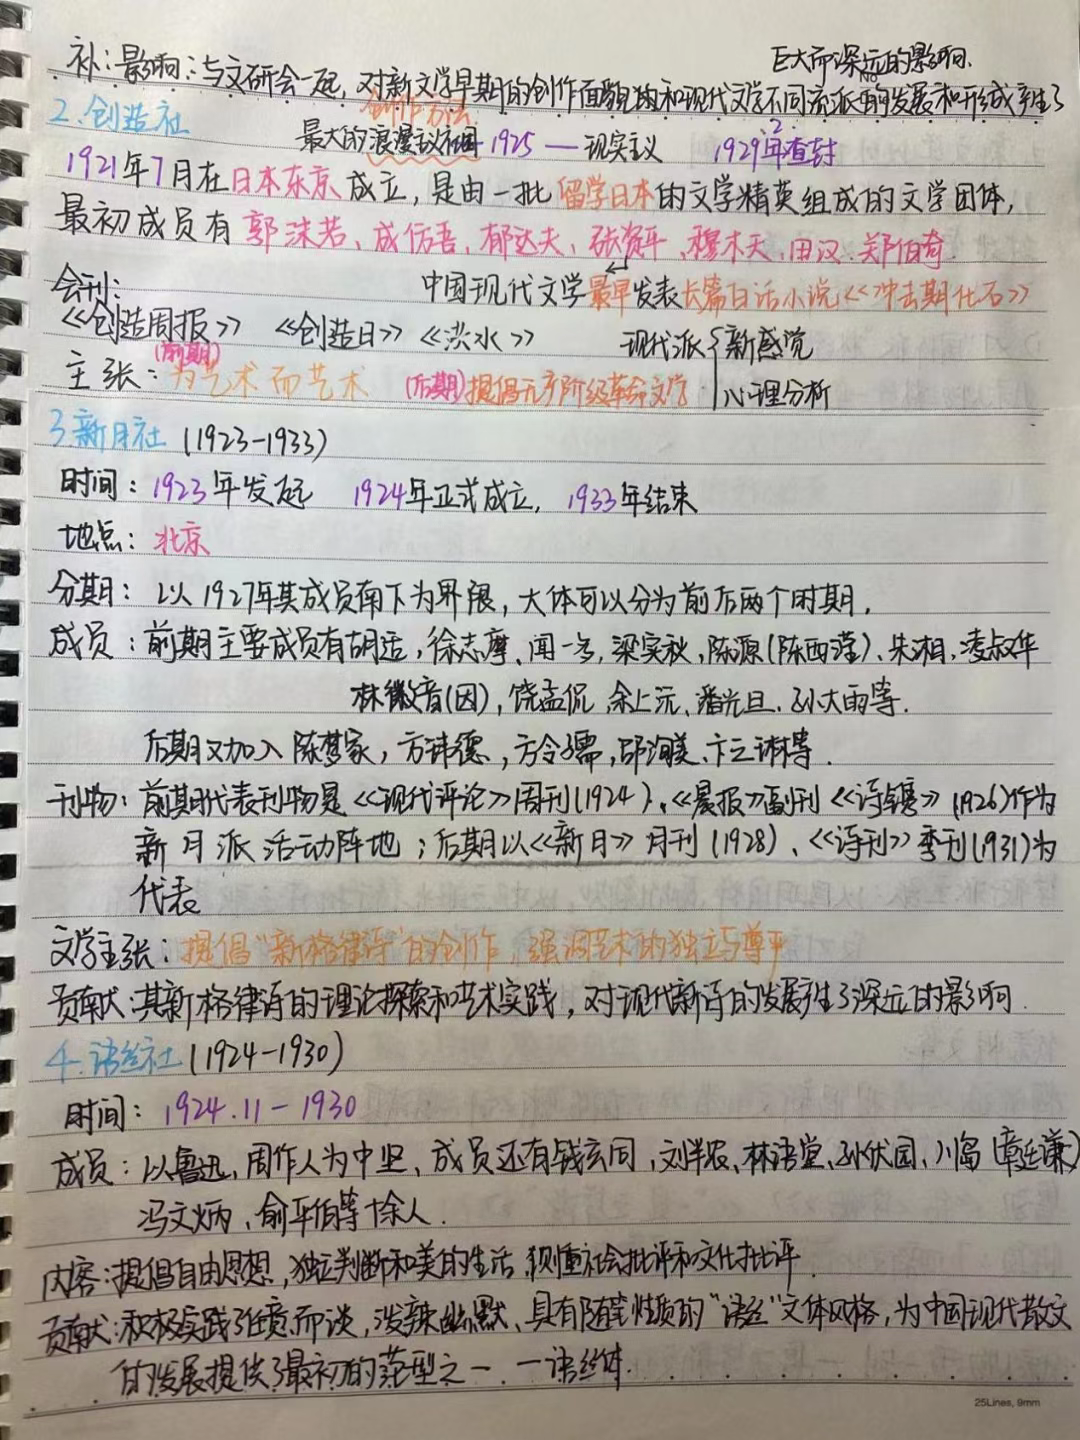 补:影响:与文研会一起,对新文学早期的创作面貌和现代文学不同流派的发展和形成产生了
巨大而深远的影响.
2.创造社
创作方法
最大的浪漫主义社团 1925 — 现实主义 1929年2查封
1921年7月在日本东京成立,是由一批留学日本的文学精英组成的文学团体,
最初成员有郭沫若、成仿吾、郁达夫、张资平、穆木天、田汉、郑伯奇.
会刊: 中国现代文学最早发表长篇白话小说《冲击期化石》
《创造周报》 《创造日》 《洪水》 现代派{新感觉
(前期)
主张:为艺术而艺术 (后期)提倡无产阶级革命文学 心理分析
3.新月社 (1923-1933)
时间: 1923年发起 1924年正式成立, 1933年结束
地点: 北京
分期: 以1927年其成员南下为界限,大体可以分为前后两个时期.
成员:前期主要成员有胡适,徐志摩、闻一多,梁实秋,陈源(陈西滢)、朱湘,凌叔华
林徽音(因),饶孟侃、余上沅、潘光旦、孙大雨等.
后期又加入陈梦家,方玮德,方令孺,邵洵美、卞之琳等.
刊物:前期代表刊物是《现代评论》周刊(1924)、《晨报》副刊《诗镌》(1926)作为
新月派活动阵地;后期以《新月》月刊(1928)、《诗刊》季刊(1931)为
代表
文学主张:提倡“新格律诗”的创作,强调艺术的独立与尊严
贡献:其新格律诗的理论探索和艺术实践,对现代新诗的发展产生了深远的影响.
4.语丝社 (1924-1930)
时间: 1924.11-1930
成员:以鲁迅,周作人为中坚、成员还有钱玄同,刘半农、林语堂、孙伏园、川岛(章廷谦)
冯文炳、俞平伯等十余人.
内容:提倡自由思想,独立判断和美的生活,侧重社会批评和文化批评.
贡献:积极实践了任意而谈,泼辣幽默、具有随笔性质的“语丝”文体风格,为中国现代散文
的发展提供了最初的范型之一 — 语丝体.
25Lines, 9mm